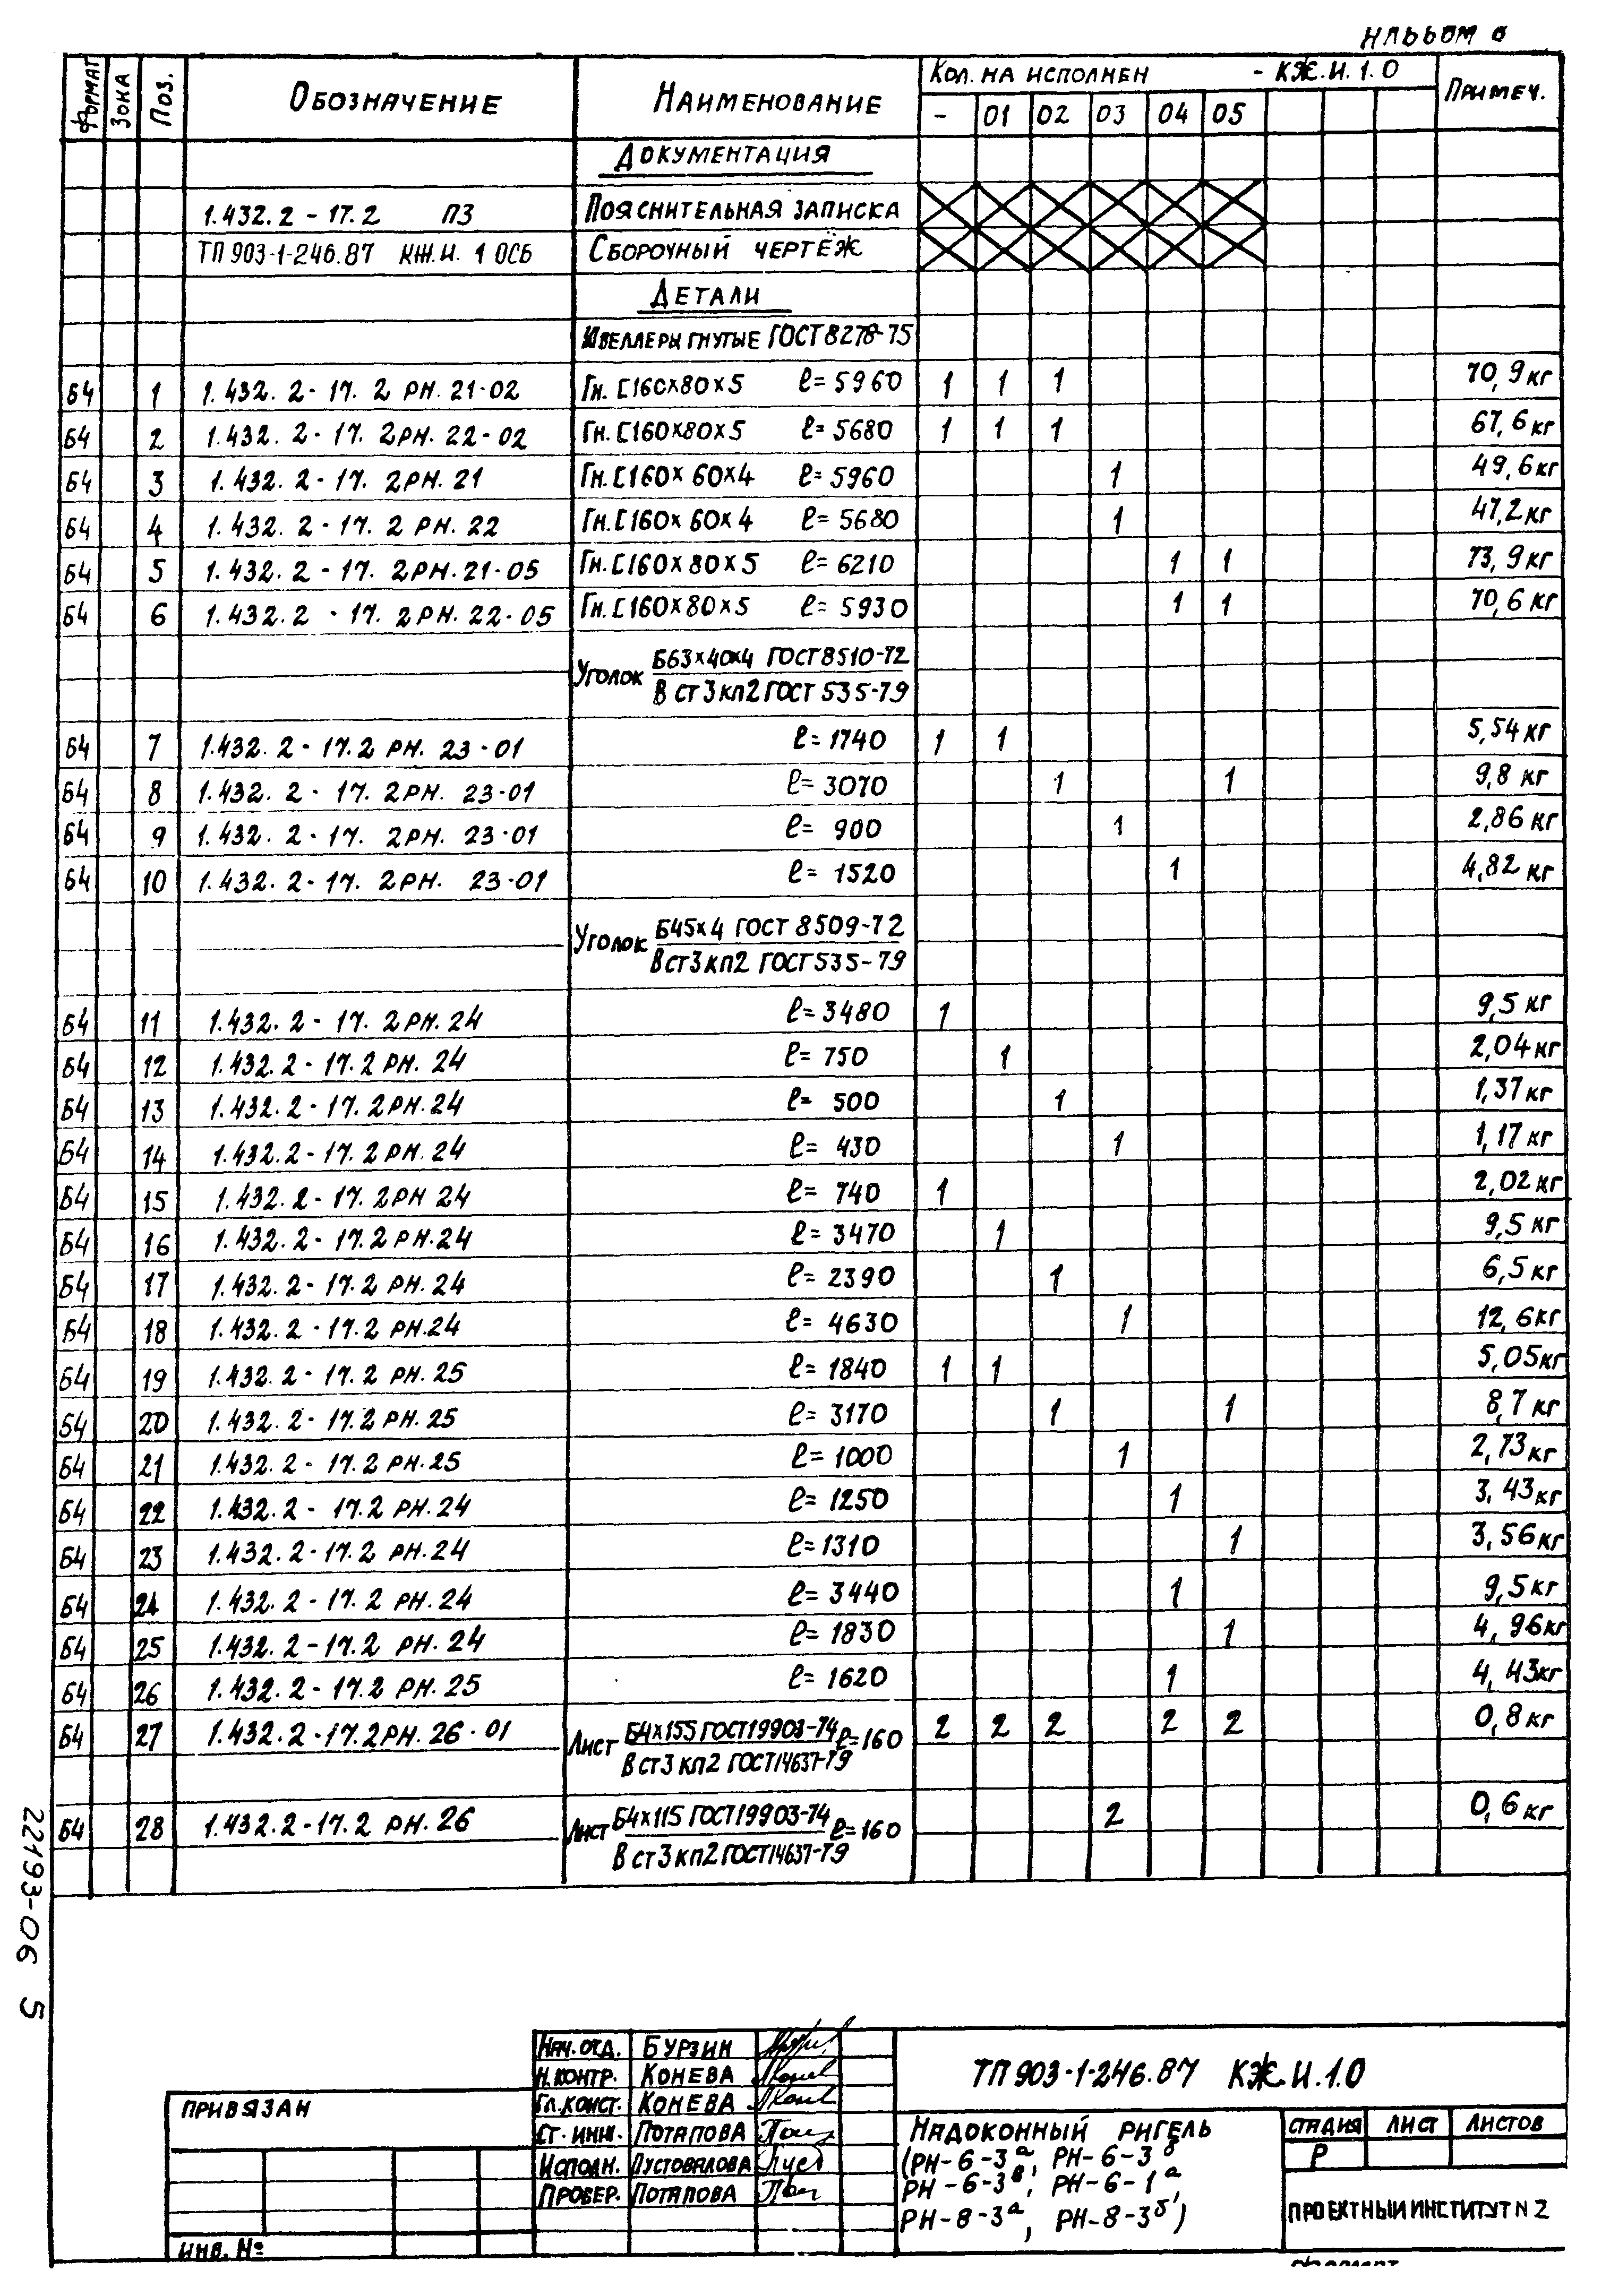 Альбом 6
Формат Зона Поз. Обозначение Наименование Кол. на исполнен - КЖ.И.1.0 Примеч.
- 01 02 03 04 05
Документация
1.432.2-17.2 ПЗ Пояснительная записка
ТП 903-1-246.87 КЖ.И.1 0СБ Сборочный чертёж
Детали
Швеллеры гнутые ГОСТ 8278-75
Б4 1 1.432.2-17.2 РН.21-02 Гн.[160×80×5 ℓ=5960 1 1 1 70,9 кг
Б4 2 1.432.2-17.2РН.22-02 Гн.[160×80×5 ℓ=5680 1 1 1 67,6 кг
Б4 3 1.432.2-17.2РН.21 Гн.[160×60×4 ℓ=5960 1 49,6 кг
Б4 4 1.432.2-17.2 РН.22 Гн.[160×60×4 ℓ=5680 1 47,2 кг
Б4 5 1.432.2-17.2РН.21-05 Гн.[160×80×5 ℓ=6210 1 1 73,9 кг
Б4 6 1.432.2-17.2РН.22-05 Гн.[160×80×5 ℓ=5930 1 1 70,6 кг
Уголок Б63×40×4 ГОСТ 8510-72
В ст3кп2 ГОСТ 535-79
Б4 7 1.432.2-17.2 РН.23-01 ℓ=1740 1 1 5,54 кг
Б4 8 1.432.2-17.2РН.23-01 ℓ=3070 1 1 9,8 кг
Б4 9 1.432.2-17.2РН.23-01 ℓ=900 1 2,86 кг
Б4 10 1.432.2-17.2РН.23-01 ℓ=1520 1 4,82 кг
Уголок Б45×4 ГОСТ 8509-72
Вст3кп2 ГОСТ 535-79
Б4 11 1.432.2-17.2РН.24 ℓ=3480 1 9,5 кг
Б4 12 1.432.2-17.2 РН.24 ℓ=750 1 2,04 кг
Б4 13 1.432.2-17.2РН.24 ℓ=500 1 1,37 кг
Б4 14 1.432.2-17.2РН.24 ℓ=430 1 1,17 кг
Б4 15 1.432.2-17.2РН 24 ℓ=740 1 2,02 кг
Б4 16 1.432.2-17.2 РН.24 ℓ=3470 1 9,5 кг
Б4 17 1.432.2-17.2 РН.24 ℓ=2390 1 6,5 кг
Б4 18 1.432.2-17.2 РН.24 ℓ=4630 1 12,6кг
Б4 19 1.432.2-17.2 РН.25 ℓ=1840 1 1 5,05кг
Б4 20 1.432.2-17.2 РН.25 ℓ=3170 1 1 8,7 кг
Б4 21 1.432.2-17.2 РН.25 ℓ=1000 1 2,73кг
Б4 22 1.432.2-17.2 РН.24 ℓ=1250 1 3,43кг
Б4 23 1.432.2-17.2 РН.24 ℓ=1310 1 3,56кг
Б4 24 1.432.2-17.2 РН.24 ℓ=3440 1 9,5кг
Б4 25 1.432.2-17.2 РН.24 ℓ=1830 1 4,96кг
Б4 26 1.432.2-17.2 РН.25 ℓ=1620 1 4,43кг
Б4 27 1.432.2-17.2РН.26-01 Лист Б4×155 ГОСТ19903-74 ℓ=160 2 2 2 2 2 0,8 кг
В ст3 кп2 ГОСТ14637-79
Б4 28 1.432.2-17.2 РН.26 Лист Б4×115 ГОСТ19903-74 ℓ=160 2 0,6 кг
В ст3кп2 ГОСТ14637-79
22193-06 5
Нач.отд. Бурзин
Н.контр. Конева
Гл.конст. Конева
Ст.инж. Потапова
Исполн. Пустовалова
Провер. Потапова
ТП 903-1-246.87 КЖ.И.1.0
Надоконный ригель
(РН-6-3а, РН-6-3б
РН-6-3в, РН-6-1а
РН-8-3а, РН-8-3б)
Стадия Лист Листов
Р
Проектный институт N 2
Привязан
Инв. №